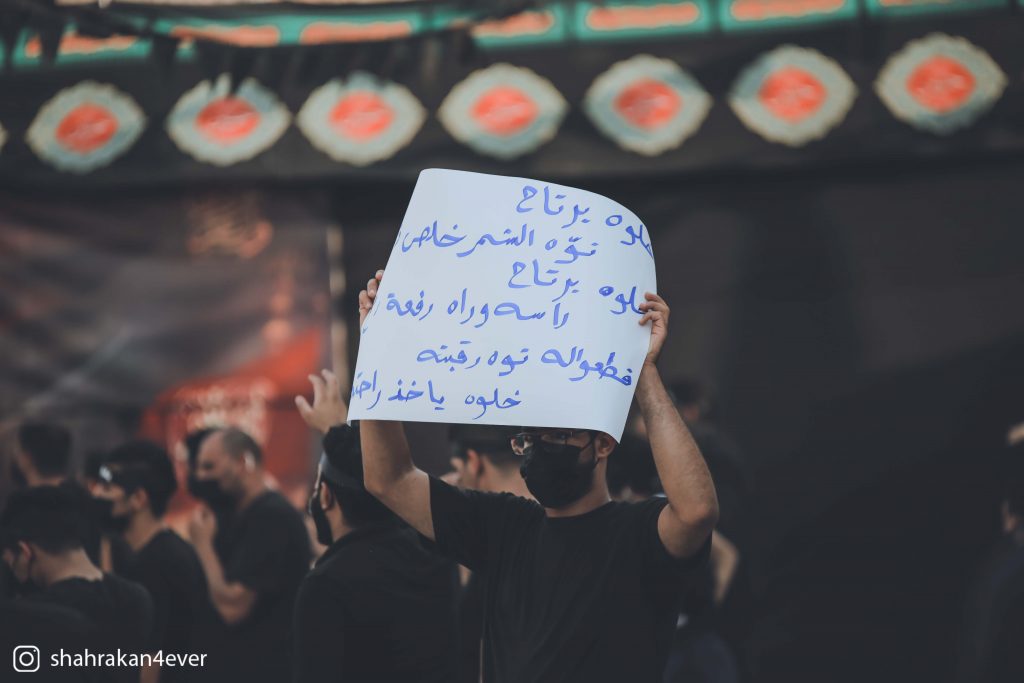 خلوه يرتاح
توّه الشمر خلص
خلوه يرتاح
راسه وراه رفعة
قطعواله توه رقبته
خلوه ياخذ راحته
shahrakan4ever